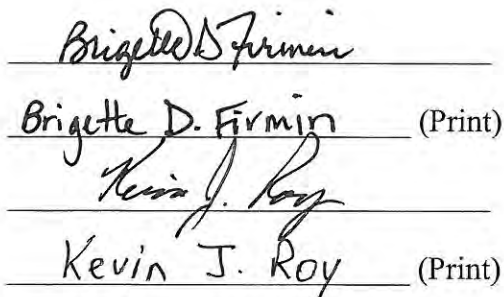 Brigette D Firmin
Brigette D. Firmin (Print)
Kevin J. Roy
Kevin J. Roy (Print)